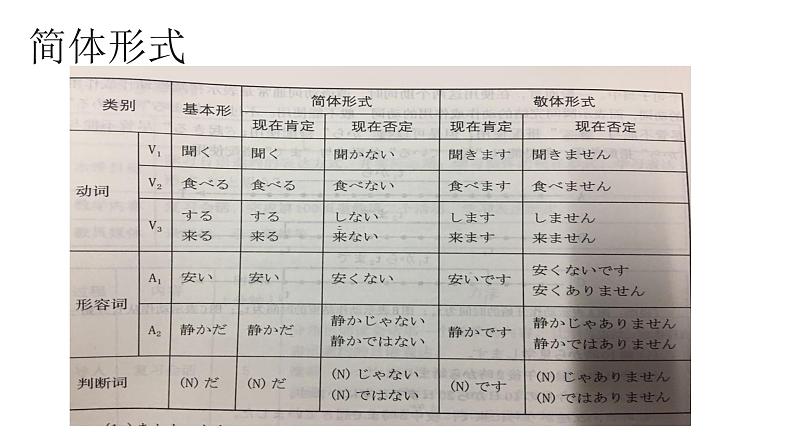 简体形式
类别 基本形 简体形式 敬体形式
现在肯定 现在否定 现在肯定 现在否定
动词 V₁ 聞く 聞く 聞かない 聞きます 聞きません
V₂ 食べる 食べる 食べない 食べます 食べません
V₃ する する しない します しません
来る 来る 来ない 来ます 来ません
形容词 A₁ 安い 安い 安くない 安いです 安くないです
安くありません
A₂ 静かだ 静かだ 静かじゃない 静かです 静かじゃありません
静かではない 静かではありません
判断词 (N) だ (N) だ (N) じゃない (N) です (N) じゃありません
(N) ではない (N) ではありません